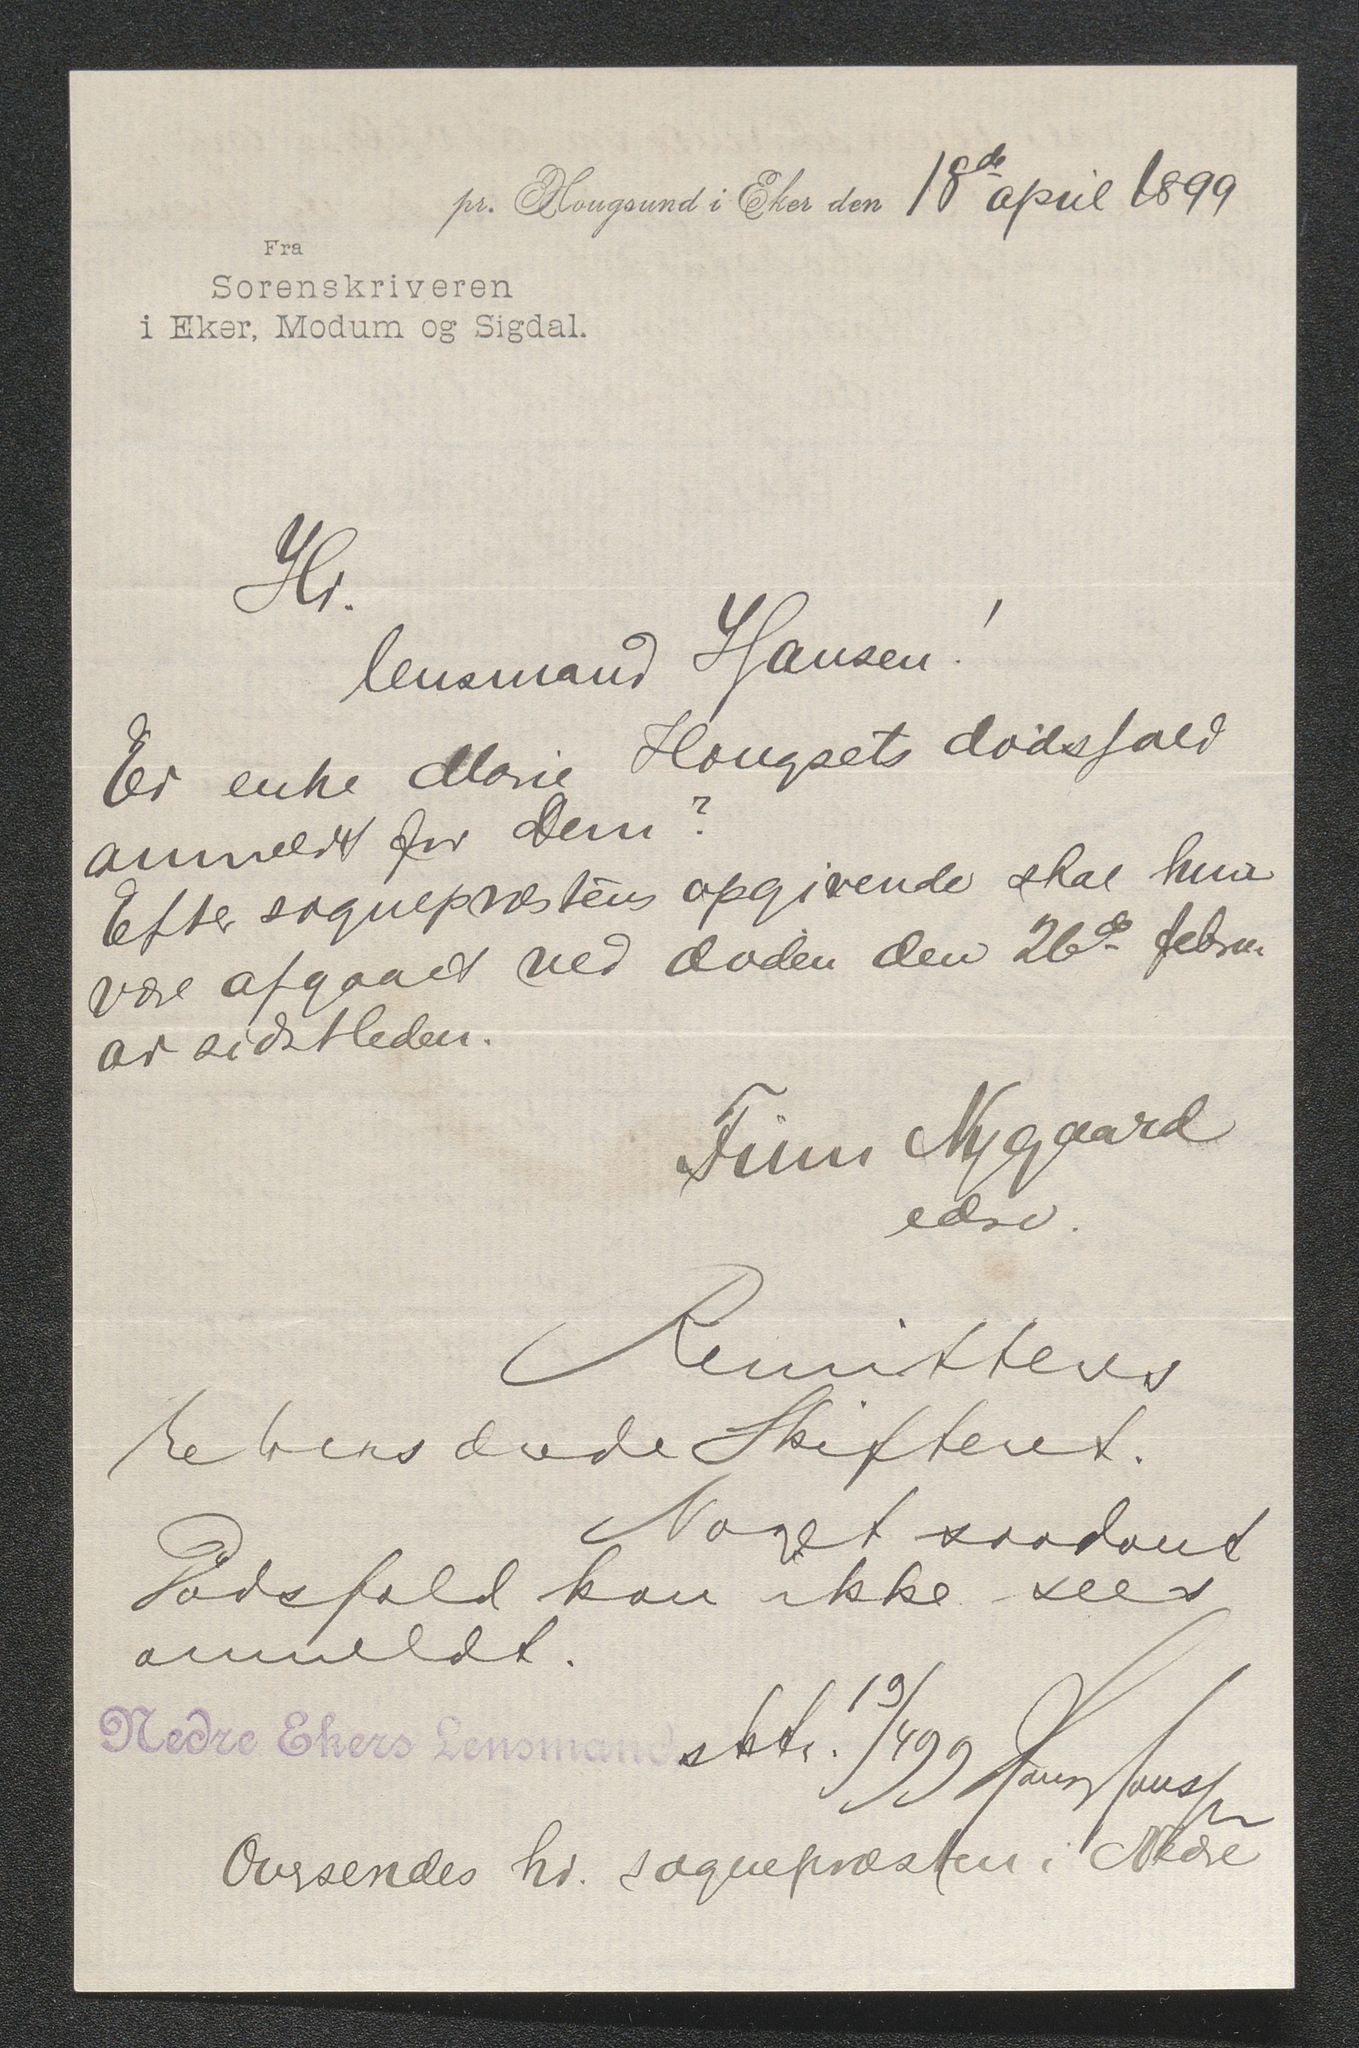 pr. Hougsund i Eker den 18de april 1899
Fra
Sorenskriveren
i Eker, Modum og Sigdal.
Hr.
lensmand Hansen!
Er enke Marie Hougsets dødsfald
anmeldt for Dem?
Efter sognepræstens opgivende skal hun
være afgaaet ved døden den 26de febru-
ar sidstleden.
Finn Nygaard
edsv.
Remitteres
Skifteret.
Noget saadant
Dødsfald kan ikke sees
anmeldt.
Nedre Ekers Lensmand
sktr. 19/4 99 Hans Hansen
Oversendes hr. sognepræsten i Nedre